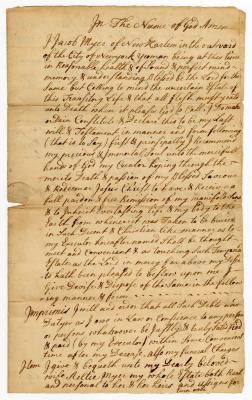 In The Name of God Amen
I Jacob Myer of New Harlem in the outward
of the City of New York Yeoman being at this time
in Reasonable health & of Sound & perfect mind &
memory & understanding Blessed be the Lord for the
same but Calling to mind the uncertain State of
this Transitory Life & that all flesh must yeald
unto Death when it please God to Call do make
ordain Constitute & Declare this to be my Last
will & Testament in manner and form following
(that is to Say) first & principally I Recommend
my precious & Immortal Soul unto the mercifull
hands of God my Creator hoping through the
merits Death & passion of my Blessed Saviour
& Redeemer Jesus Christ to have & Receive a
full pardon & free Remission of my manifold sins
& to Inherit Everlasting life & my body to the
Earth from whence it was Taken to be buried
in Such Decent & Christian like manner as to
my Executors hereafter named Shall be thought
meet and Convenient & as touching such Temporal
Estate as the Lord in mercy far above my Deserts
hath been pleased to bestow upon me I
Give Devise & Dispose of the Same in the following
ing manner & form
Imprimis I will and order that all that Debts and
Dutys as I owe in Law or Conscience to any person
or persons whatsoever be Justly & truly satisfied
& paid (by my Executors) within Some Convenient
time after my Decease also my funeral Charges
Item I give & bequeth unto my Dearly beloved
wife my whole Estate both Real
and personal to her & her heirs and assigns for